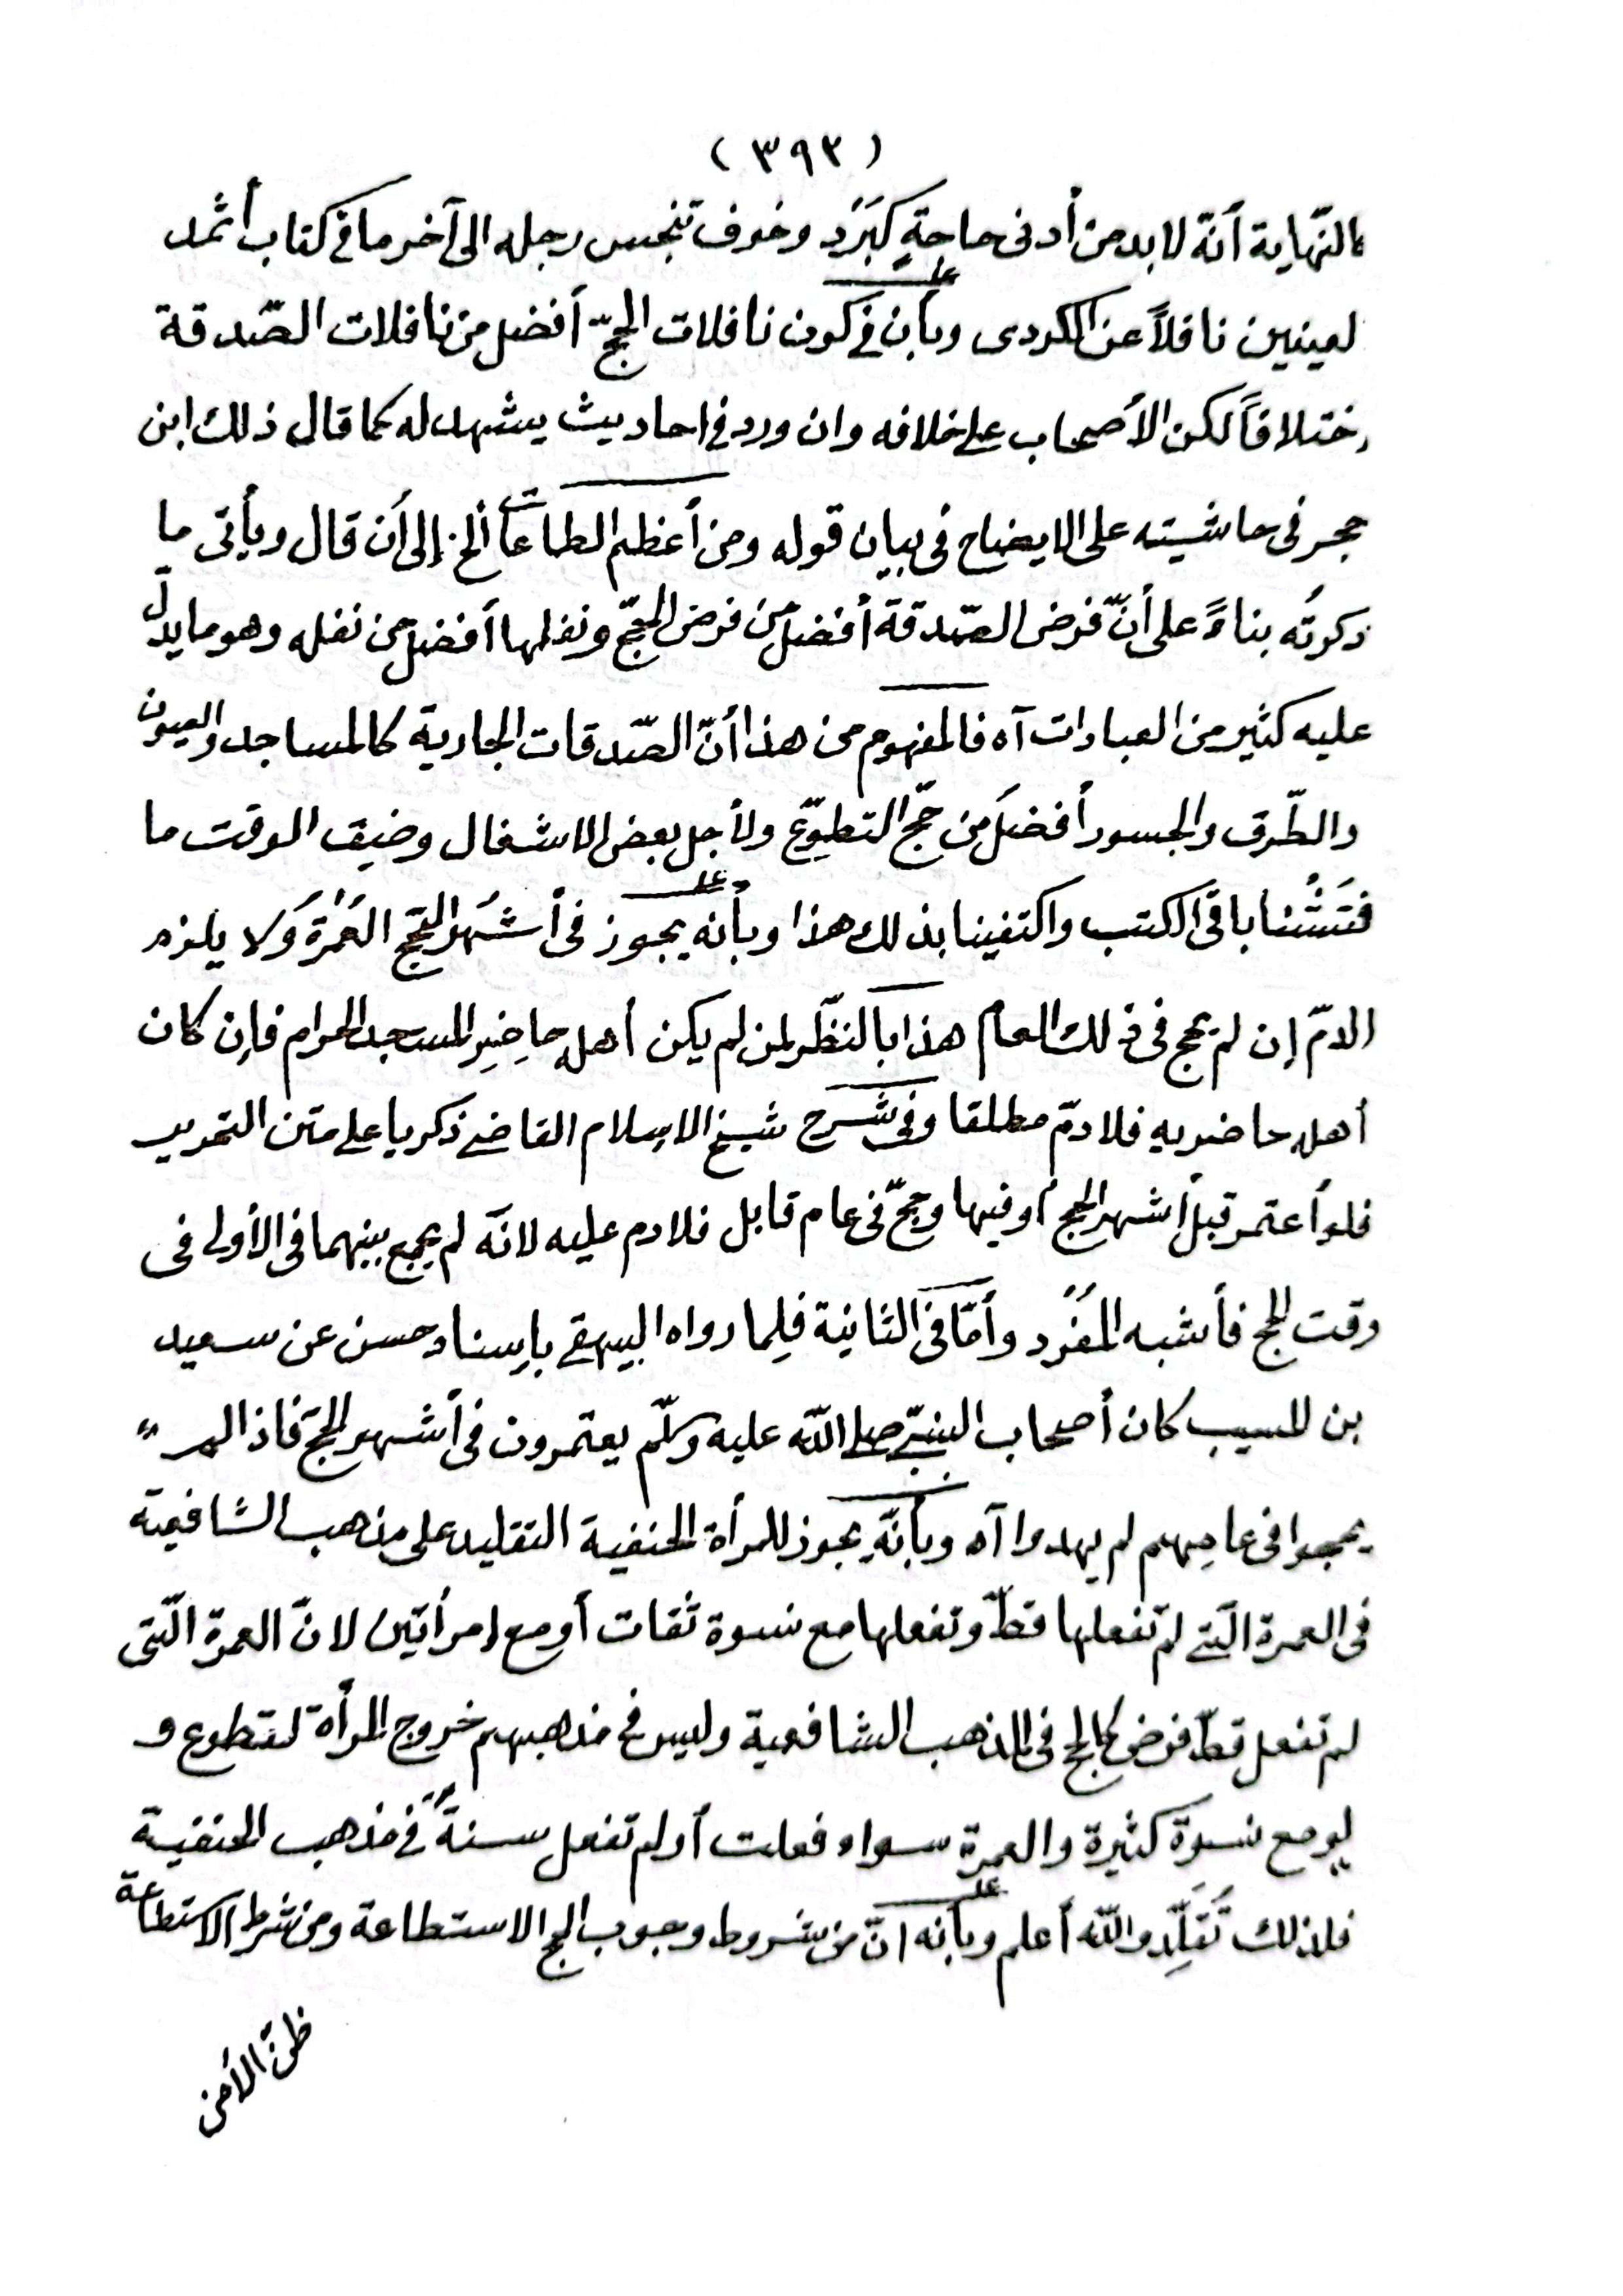 (٣٩٣)
النّهاية أنّه لا بد من أدنى حاجةٍ كبَرَد وخوف تنجس رجله الى آخر ما فى كتاب أثمد
لعينين ناقلاً عن الكردى وبأن فى كون نافلات الحجّ أفضل من نافلات الصّدقة
ختلافاً لكن الأصحاب على خلافه وان ورد فى احاديث يشهد له كما قال ذلك ابن
حجر فى حاشيته على الايضاح فى بيان قوله ومن أعظم الطاعات ألخ إلى أن قال ويأتى ما
ذكرتُه بناءً على أنّ فرض الصّدقة أفضل من فرض الحجّ ونفلها أفضل من نفله وهو ما يدلّ
عليه كثير من العبارات آه فالمفهوم من هذا أنّ الصّدقات الجارية كالمساجد والعيون
والطّرق والجسور أفضل من حجّ التطوّع ولأجل بعض الاشغال وضيق الوقت ما
فتَشْنا باقى الكتب واكتفينا بذلك هذا وبأنه يجوز فى أشهُر الحجّ العُمْرَة وَلا يلزم
الدمّ إن لم يحج فى ذلك العام هذا بالنظّر لمن لم يكن أهله حاضِرِ المسجد الحرام فإن كان
أهله حاضريه فلا دمّ مطلقا وفى شرح شيخ الاسلام القاضى زكريا على متن التحرير
فلو أعتمر قبل أشهر الحج أو فيها وحجّ فى عام قابل فلا دم عليه لانّه لم يجمع بينهما فى الأولى فى
وقت الحج فأشبه المُفْرِد وأمّا فى الثانية فلِما رواه البيهقى بإسناد حسن عن سعيد
بن المسيب كان أصحاب النبىّ صلى اللّه عليه وسلّم يعتمرون فى أشهر الحجّ فاذا لم
يحجوا فى عامِهم لم يهدوا آه وبأنّه يجوز للمرأة الحنفية التقليد على مذهب الشافعية
فى العمرة الّتى لم تفعلها قطّ وتفعلها مع نسوة ثقات أو مع إمرأتين لانّ العمرة الّتى
لم تفعل قطّ فرض كالحج فى المذهب الشافعية وليس فى مذهبهم خروج المرأة لتطوع و
لو مع نسوة كثيرة والعمرة سواء فعلت أو لم تفعل سنةً فى مذهب الحنفية
فلذلك تُقَلِّد واللّه أعلم وبأنه انّ من شروط وجوب الحج الاستطاعة ومن شرط الاستطاعة
ظنّ الأمن